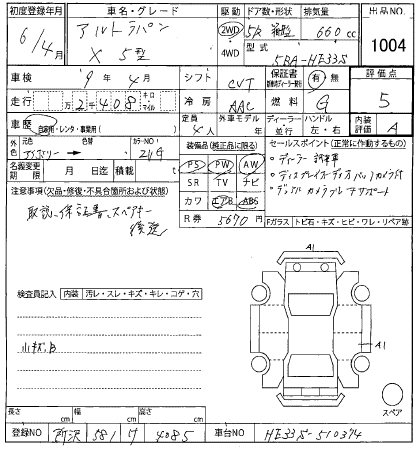 初度登録年月 車名・グレード 駆動 ドア数・形状 排気量 出品NO.
6/4月 アルトラパン 2WD 5D 660cc 1004
X 5型 4WD 型式 5BA-HE33S
車検 9年4月 シフト CVT 保証書 有 無 評価点
走行 万2千408 キロ マイル 冷房 AAC 燃料 G 5
車歴 自家用・レンタ・事業用( ) 定員 4人 外車モデル 年 ディーラー・並行 ハンドル 左・右 内装評価 A
外色 元色 アイボリー 色替 カラーNO. Z1G 装備品(純正品に限る) セールスポイント(正常に作動するもの)
名義変更期限 月 日迄 積載 PS PW AW ・ディーラー試乗車
SR TV ナビ ・ディスプレイオーディオバックカメラ付
注意事項(欠品・修復・不具合箇所および状態) カワ エアB ABS ・デュアルカメラブレーキサポート
取説、保証書、スペアキー後送 R券 5670円 Fガラス トビ石・キズ・ヒビ・ワレ・リペア跡
検査員記入 内装 汚レ・スレ・キズ・キレ・コゲ・穴
A1
小キズB
A1
スペア
長さ cm 幅 cm 高さ cm
登録NO 所沢 581 ワ 4085 車台NO HE33S-510374